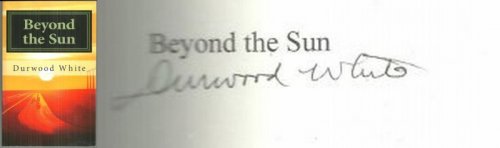 Beyond
the Sun
Durwood White
Beyond the Sun
Durwood White